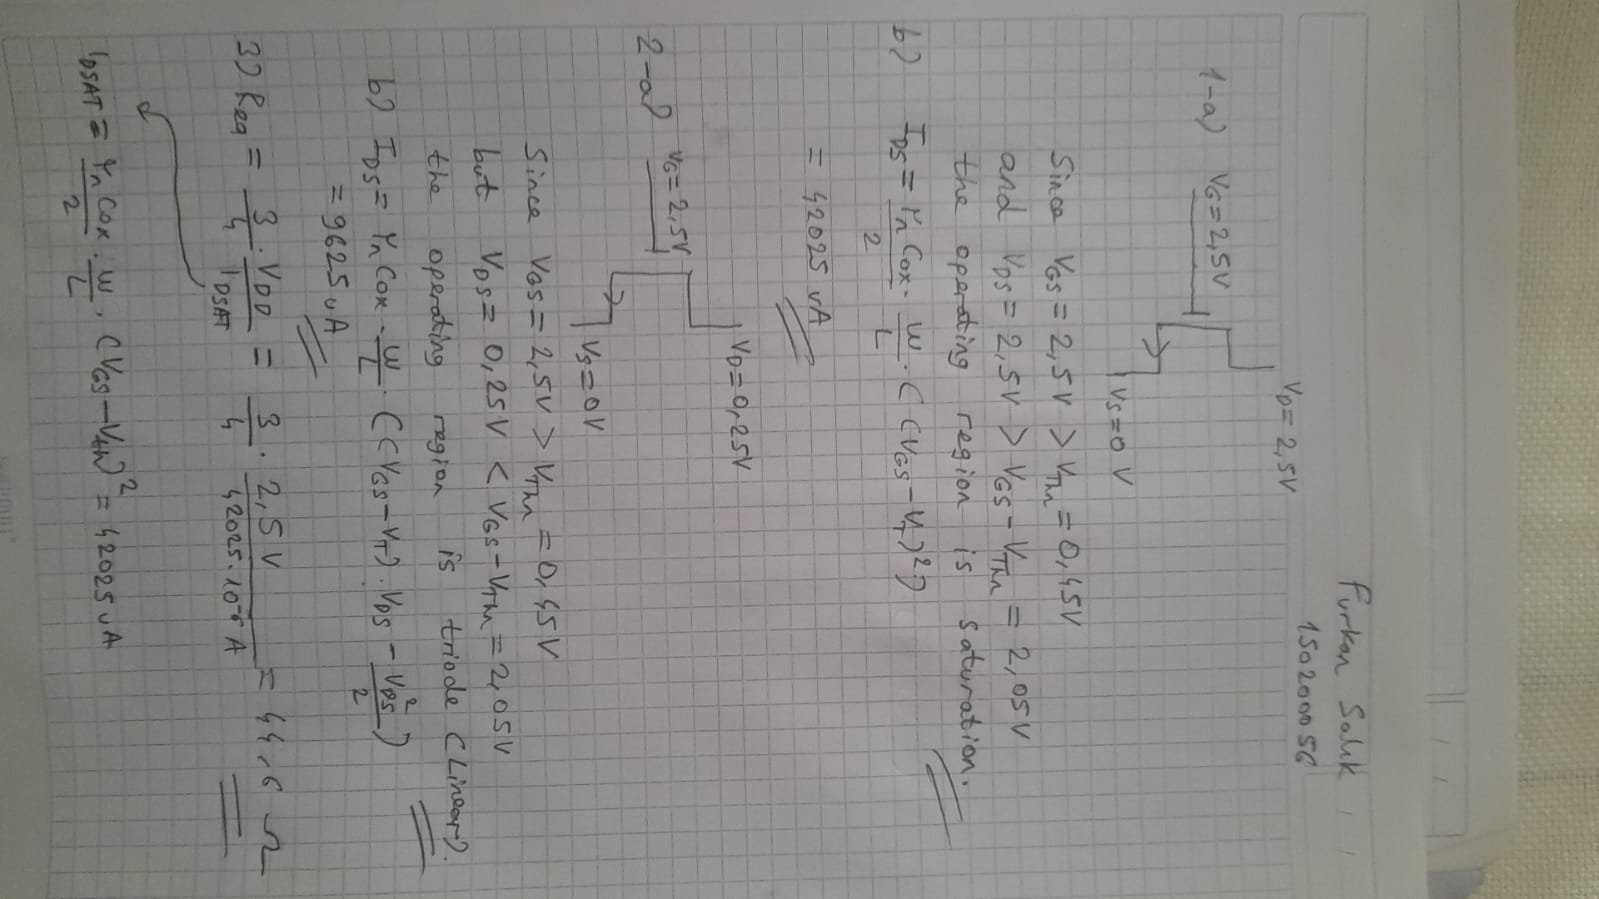 Furkan Salık
150200056
VD = 2,5V
1-a) VG = 2,5V
VS = 0 V
Since VGS = 2,5V > VThn = 0,45V
and VDS = 2,5V > VGS - VThn = 2,05V
the operating region is saturation.
b) IDS = μn Cox / 2 · W/L · ((VGS - VT)²)
= 42025 uA
VD = 0,25V
2-a) VG = 2,5V
VS = 0V
Since VGS = 2,5V > VThn = 0,45V
but VDS = 0,25V < VGS - VThn = 2,05V
the operating region is triode (Linear).
b) IDS = μn Cox · W/L · ((VGS - VT) · VDS - VDS²/2)
= 9625 uA
3) Req = 3/4 · VDD / IDSAT = 3/4 · 2,5 V / 42025·10⁻⁶ A = 44,6 Ω
IDSAT = μn Cox / 2 · W/L · (VGS - Vth)² = 42025 uA